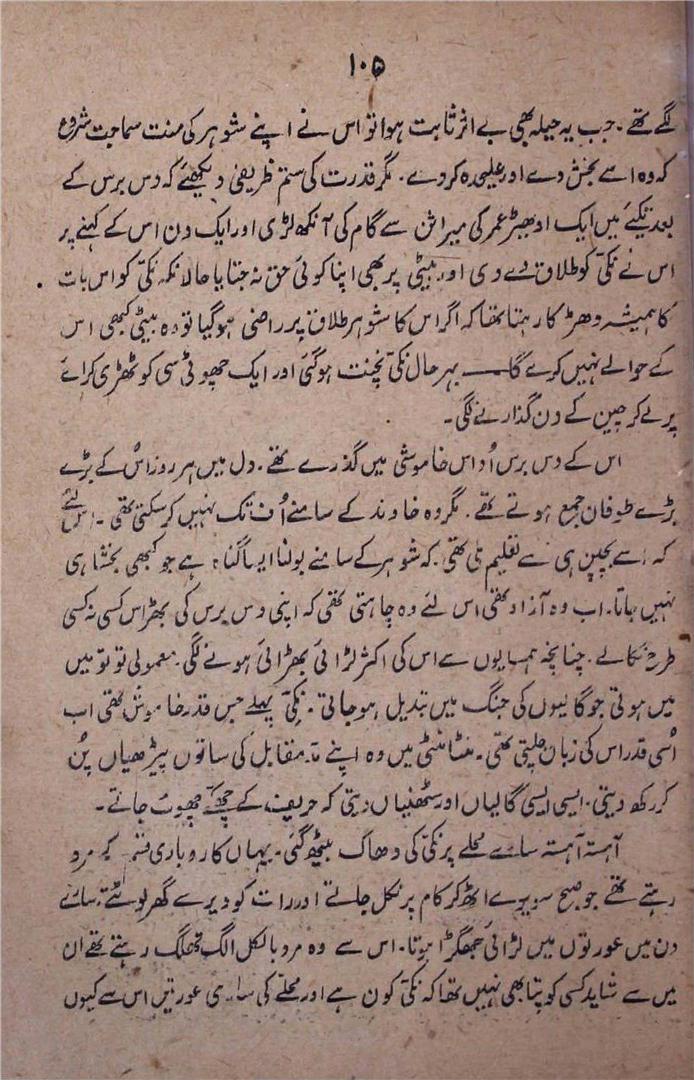 ۱۰۵
لگے تھے۔ جب یہ حیلہ بھی بے اثر ثابت ہوا تو اس نے اپنے شوہر کی منت سماجت شروع
کہ وہ اسے بخش دے اور علیحدہ کر دے۔ مگر قدرت کی ستم ظریفی دیکھئے کہ دس برس کے
بعد تکیئے میں ایک ادھیڑ عمر کی میراثن سے گام کی آنکھ لڑی اور ایک دن اس کے کہنے پر
اس نے نکی کو طلاق دے دی اور بیٹی پر بھی اپنا کوئی حق نہ جتایا حالانکہ نکی کو اس بات
کا ہمیشہ دھڑکا رہتا تھا کہ اگر اس کا شوہر طلاق پر راضی ہو گیا تو وہ بیٹی کبھی اس
کے حوالے نہیں کرے گا—— بہرحال نکی نچنت ہو گئی اور ایک چھوٹی سی کوٹھڑی کرائے
پر لے کر چین کے دن گذارنے لگی۔
اس کے دس برس اُداس خاموشی میں گذرے تھے۔ دل میں ہر روز اس کے بڑے
بڑے طوفان جمع ہوتے تھے۔ مگر وہ خاوند کے سامنے اُف تک نہیں کر سکتی تھی۔ اس لئے
کہ اسے بچپن ہی سے تعلیم ملی تھی۔ کہ شوہر کے سامنے بولنا ایسا گناہ ہے جو کبھی بخشا ہی
نہیں جاتا۔ اب وہ آزاد تھی اس لئے وہ چاہتی تھی کہ اپنی دس برس کی بھڑاس کسی نہ کسی
طرح نکالے۔ چنانچہ ہمسایوں سے اس کی اکثر لڑائی بھڑائی ہونے لگی۔ معمولی تو تو میں
میں ہوتی جو گالیوں کی جنگ میں تبدیل ہو جاتی۔ نکی پہلے جس قدر خاموش تھی اب
اُسی قدر اس کی زبان چلتی تھی۔ منٹا منٹی میں وہ اپنے مدِ مقابل کی ساتوں پیڑھیاں پُن
کر رکھ دیتی۔ ایسی ایسی گالیاں اور سٹھنیاں دیتی کہ حریف کے چھکے چھوٹ جاتے۔
آہستہ آہستہ سارے محلے پر نکی کی دھاک بیٹھ گئی۔ یہاں کاروباری قسم کے مرد
رہتے تھے جو صبح سویرے اٹھ کر کام پر نکل جاتے اور رات کو دیر سے گھر لوٹتے۔ سارے
دن میں عورتوں میں لڑائی جھگڑا ہوتا۔ اس سے وہ مرد بالکل الگ تھلگ رہتے تھے ان
میں سے شاید کسی کو پتا بھی نہیں تھا کہ نکی کون ہے اور محلے کی ساری عورتیں اس سے کیوں